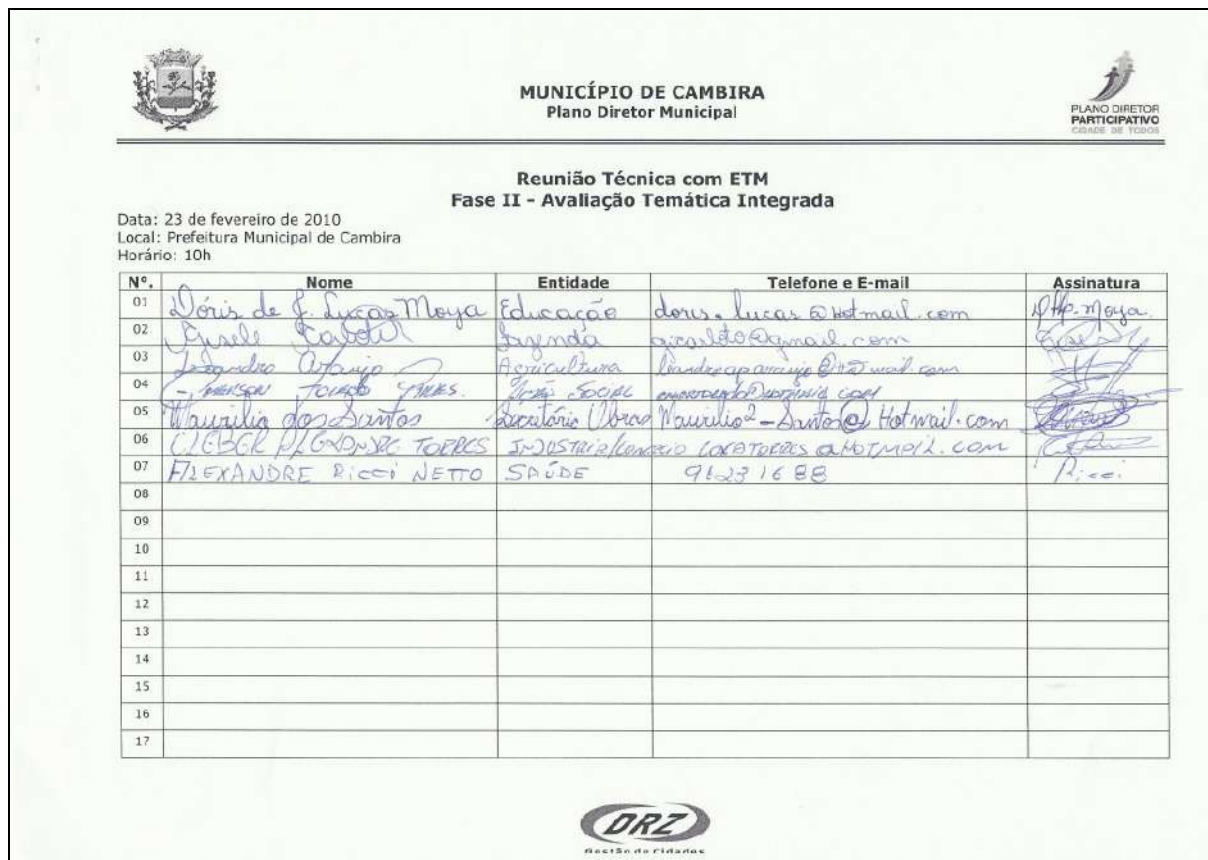 MUNICÍPIO DE CAMBIRA
Plano Diretor Municipal
PLANO DIRETOR
PARTICIPATIVO
CIDADE DE TODOS
Reunião Técnica com ETM
Fase II - Avaliação Temática Integrada
Data: 23 de fevereiro de 2010
Local: Prefeitura Municipal de Cambira
Horário: 10h
Nº. Nome Entidade Telefone e E-mail Assinatura
01 Dóris de J. Lucas Moya Educação doris.lucas@hotmail.com Moya
02 Gisele Fazenda
03 Leandro Araujo Agricultura leandroaparaujo@hotmail.com
04 Emerson Toledo Social
05 Maurilio dos Santos Secretário Obras Maurilio2-Santos@Hotmail.com
06 CLEBER ALEXANDRE TORRES INDUSTRIA/Comercio LOCATORRES@HOTMAIL.COM
07 ALEXANDRE RICCI NETTO SAÚDE 96231688 Ricci
08
09
10
11
12
13
14
15
16
17
DRZ
Gestão de Cidades